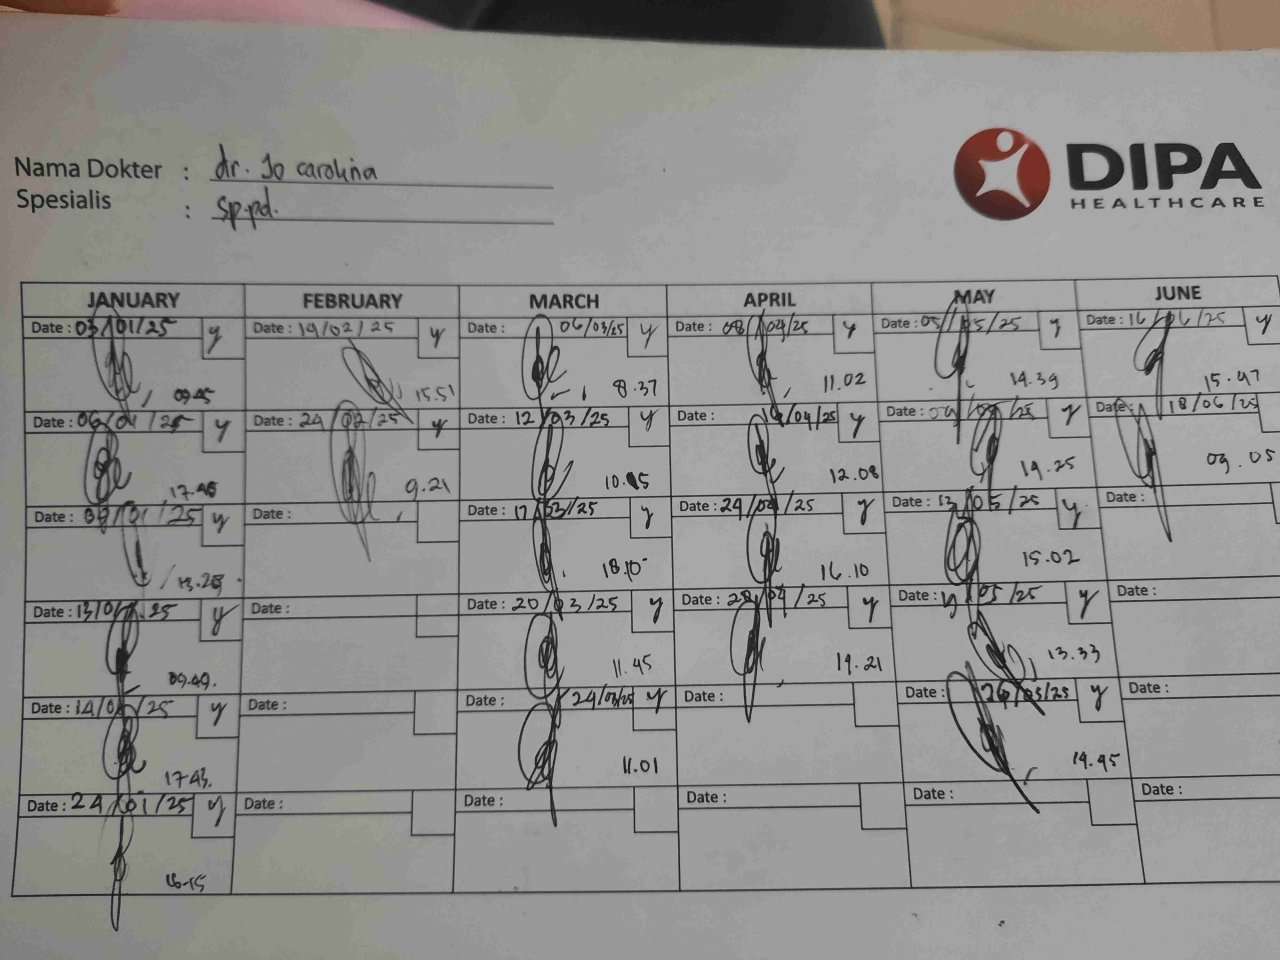 Nama Dokter : dr. Jo carolina
Spesialis : Sp.pd.
DIPA
HEALTHCARE
JANUARY FEBRUARY MARCH APRIL MAY JUNE
Date : 03/01/25 y Date : 19/02/25 y Date : 06/03/25 y Date : 08/04/25 y Date : 05/05/25 y Date : 16/06/25 y
09.45 15.51 8.37 11.02 14.39 15.47
Date : 06/01/25 y Date : 24/02/25 y Date : 12/03/25 y Date : 14/04/25 y Date : /25 y Date : 18/06/25
17.45 9.21 10. 12.08 14.25 09.05
Date : /01/25 y Date : Date : 17/03/25 y Date : 24/04/25 y Date : 13/05/25 y Date :
18.10 16.10 15.02
Date : 13/01/25 y Date : Date : 20/03/25 y Date : 28/04/25 y Date : /05/25 y Date :
09.49. 11.45 14.21 13.33
Date : 14/01/25 y Date : Date : 24/03/25 y Date : Date : 26/05/25 y Date :
17.43. 11.01 14.45
Date : 24/01/25 y Date : Date : Date : Date : Date :
16.15